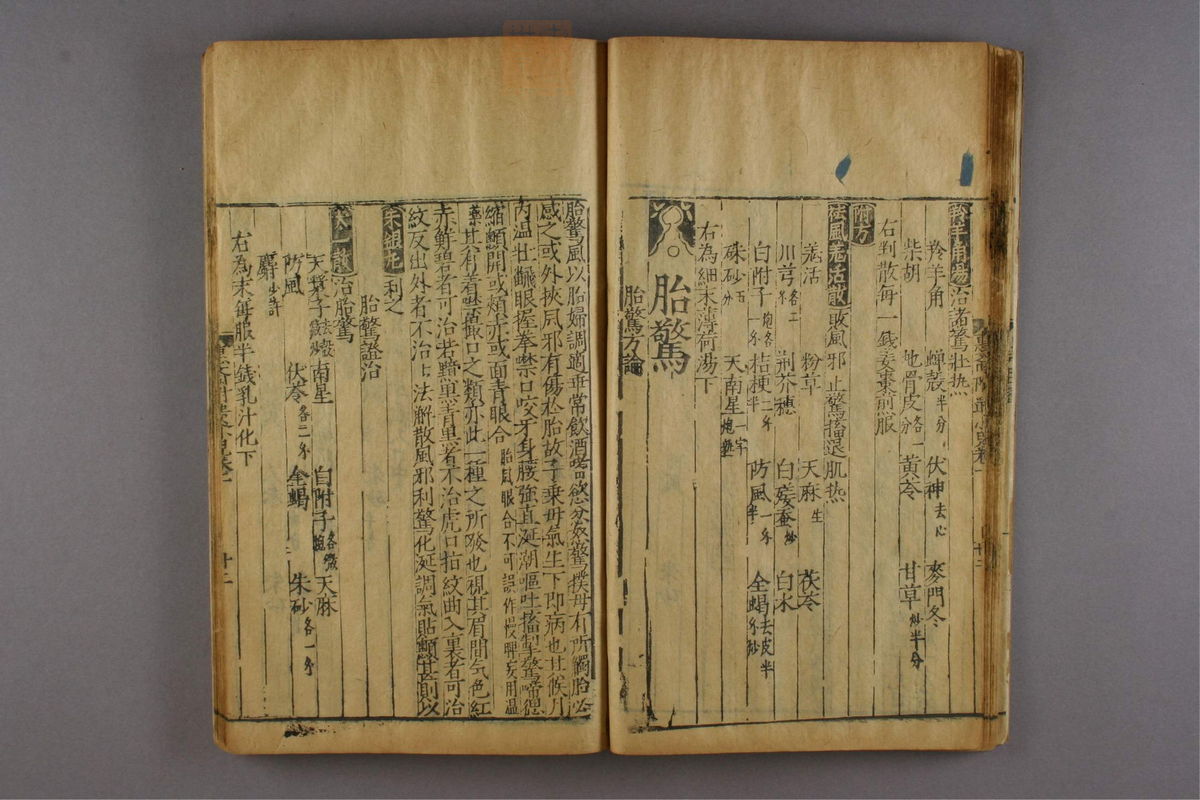 羚羊角湯治諸驚壮热
羚羊角 蟬殻半分 伏神去心 麥門冬
柴胡 地骨皮各一分 黄芩 甘草炒半分
右剉散每一錢姜棗煎服
附方
祛風羗活散敗風邪止驚搐退肌热
羗活 粉草 天麻生 茯苓
川芎各二分 荆芥穗 白殭蚕炒 白朮
白附子炮各一分 桔梗二分半 防風一分半 全蝎去皮半分炒
硃砂五分 天南星一字炮
右為細末薄荷湯下
胎驚
胎驚方論
胎驚風以胎婦調適乖常飲酒嗜慾忿怒驚撲母有所觸胎必
感之或外挾風邪有傷於胎故子乗母氣生下即病也其候月
内温壮飜眼握拳噤口咬牙身腰強直涎潮嘔吐搐掣驚啼腮
縮顖開或頰赤或面青眼合胎風眼合不可誤作慢脾妄用温
藥其有著噤撮口之類亦此一種之所發也視其眉間气色紅
赤鮮碧者可治若黯黒青黒者不治虎口指紋曲入裏者可治
紋反出外者不治上法解散風邪利驚化涎調氣貼顖甚則以
朱銀丸利之
胎驚證治
太一散治胎驚
天漿子去殻微炒 南星 白附子各微炮 天麻
防風 伏苓各二分 全蝎 朱砂各一分
麝少許
右為末每服半錢乳汁化下
十二